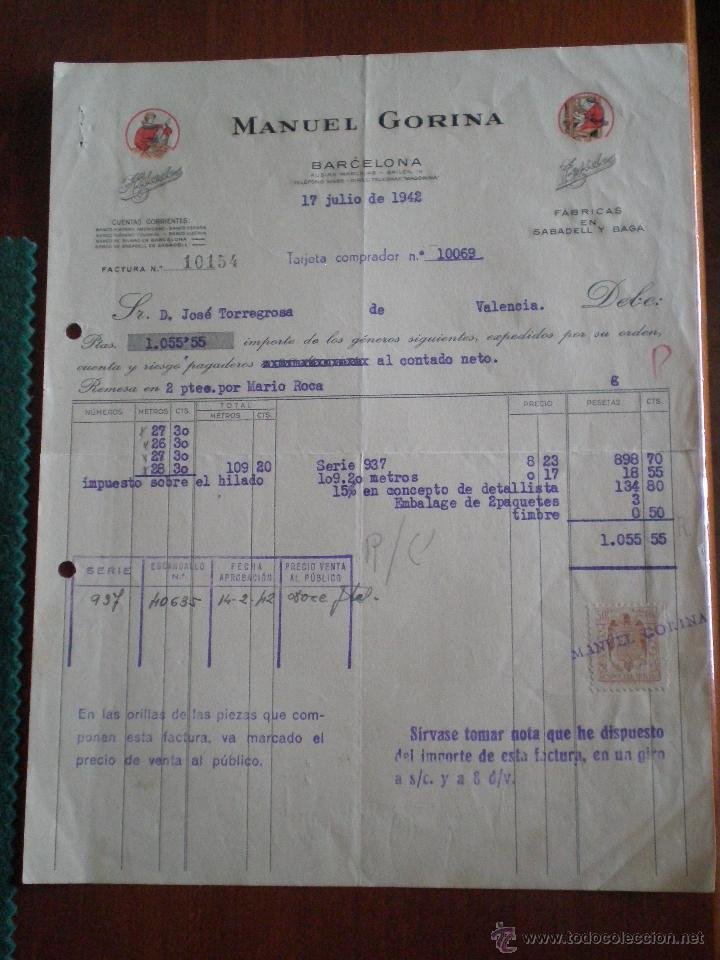 MANUEL GORINA
BARCELONA
AUSIAS MARCH, 35 - BAILÉN, 19
17 julio de 1942
CUENTAS CORRIENTES:
BANCO DE BILBAO EN BARCELONA
BANCO DE SABADELL EN SABADELL
FACTURA N.º 10154
FÁBRICAS
EN
SABADELL Y BAGÁ
Tarjeta comprador n.º 10069
Sr. D. José Torregrosa de Valencia. Debe:
Ptas. 1.055'55 importe de los géneros siguientes, expedidos por su orden,
cuenta y riesgo pagaderos al contado neto.
P
Remesa en 2 ptes.por Mario Roca 6
NÚMEROS METROS CTS. TOTAL METROS CTS. PRECIO PESETAS CTS.
27 30
26 30
27 30
28 30 109 20 Serie 937 8 23 898 70
impuesto sobre el hilado 1o9.2o metros o 17 18 55
15% en concepto de detallista 134 80
Embalage de 2paquetes 3
timbre 0 50
1.055 55
R/C
SERIE ESCANDALLO N.º FECHA APROBACIÓN PRECIO VENTA AL PÚBLICO
937 40635 14-2-42 doce ptas.
MANUEL GORINA
En las orillas de las piezas que com-
ponen esta factura, va marcado el
precio de venta al público.
Sírvase tomar nota que he dispuesto
del importe de esta factura, en un giro
a s/c. y a 8 d/v.
www.todocoleccion.net